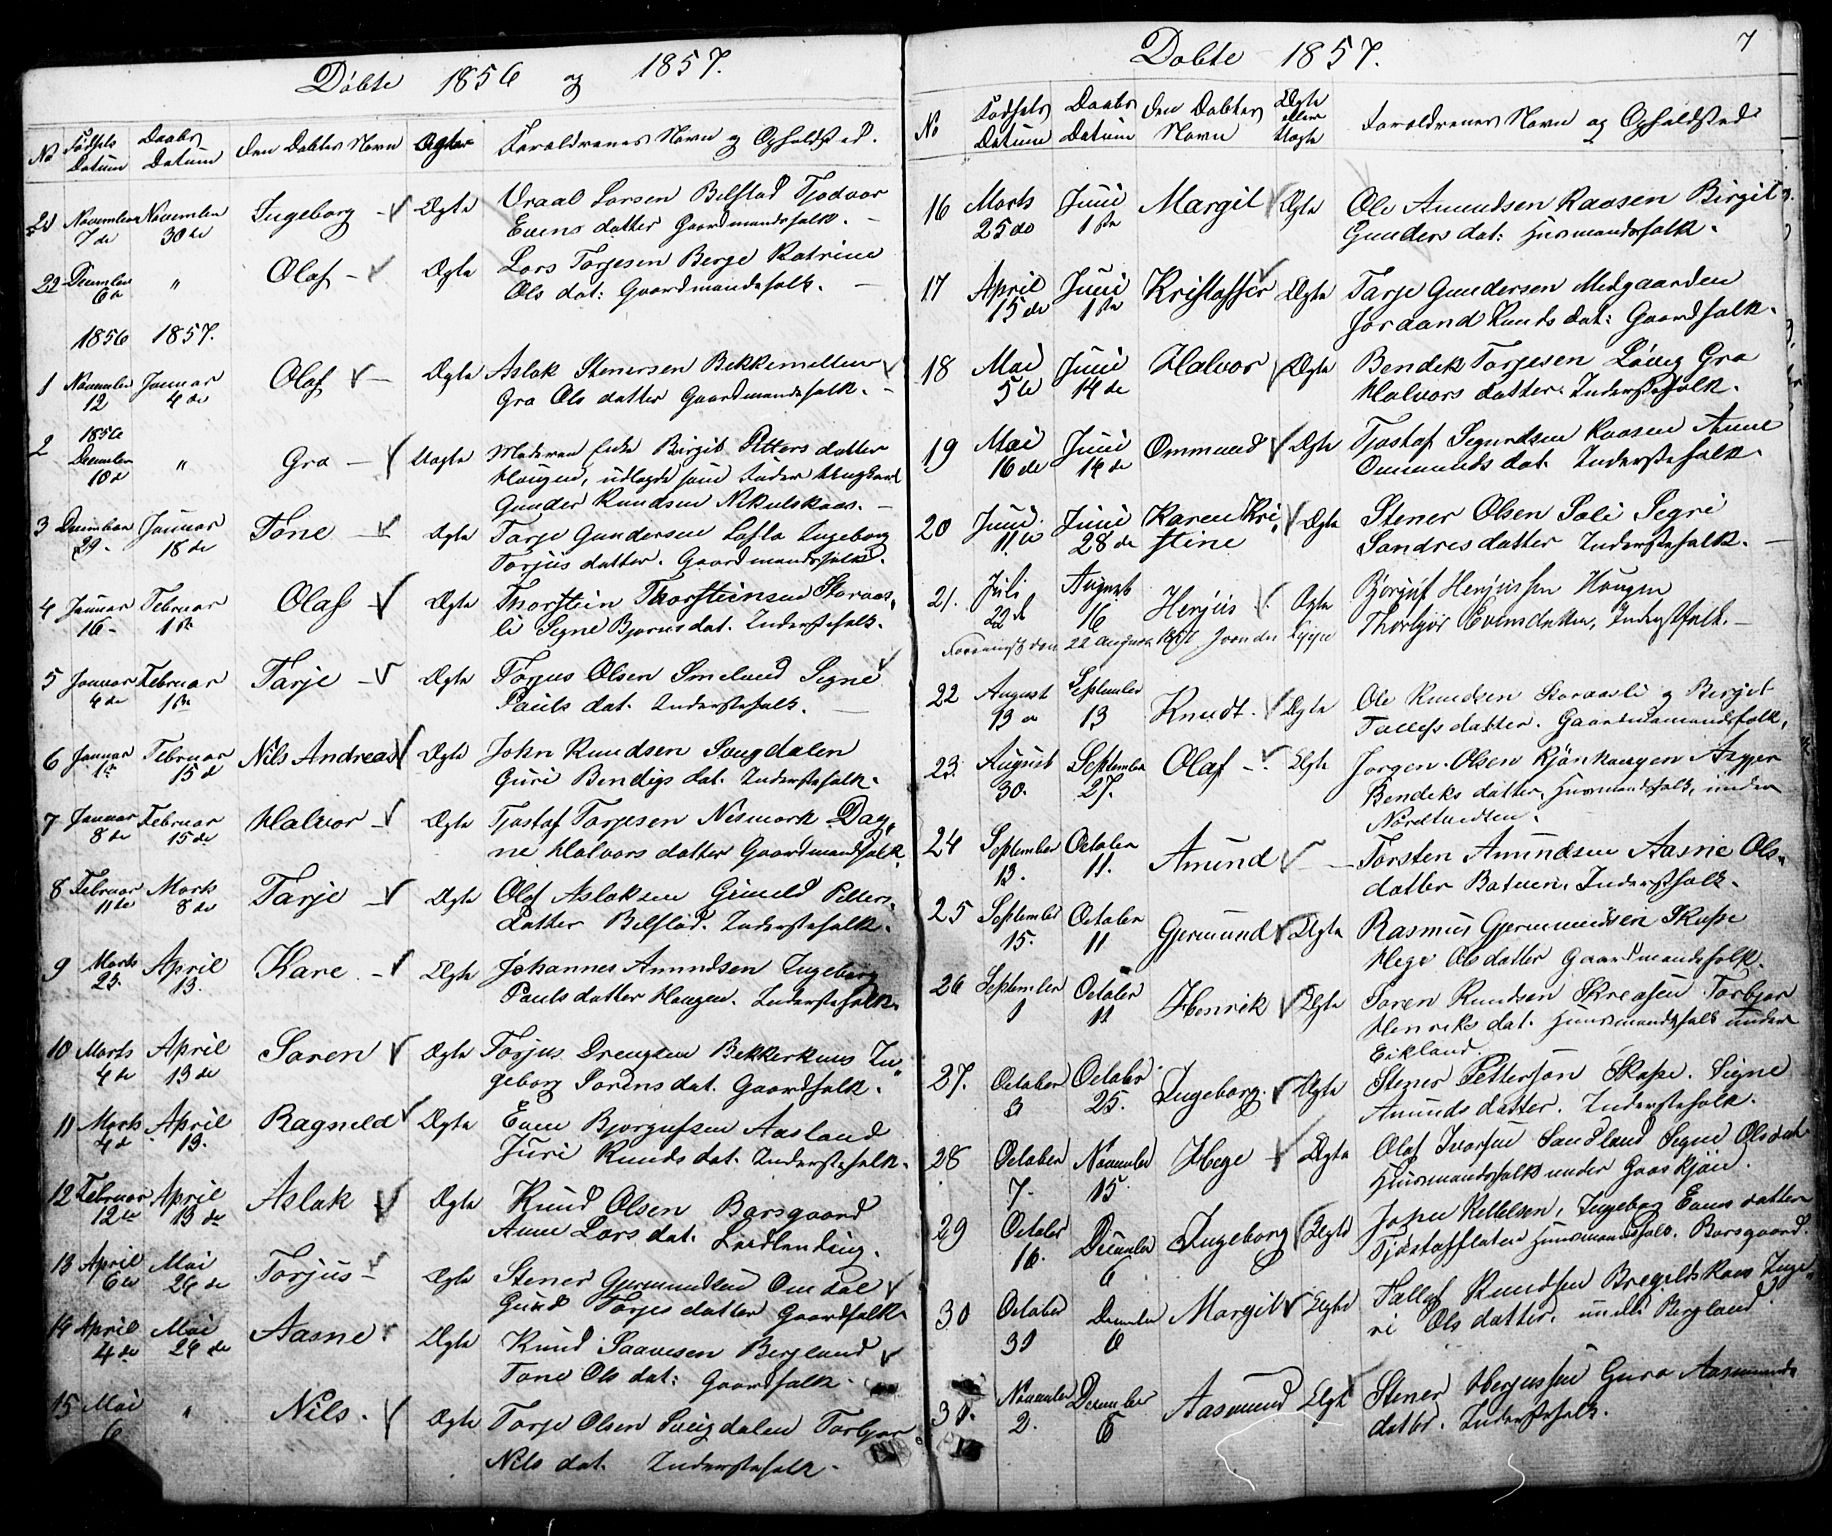 Döbte 1856 og 1857.
No Födsels Datum Daabs Datum Den Döbtes Navn Ægte Foræeldrenes Navn og Opholdsted.
21 November 7de November 30te Ingeborg Ægte Vraal Larsen Belstad Tjodvor
Evens datter Gaardmandsfolk.
22 December 6te " Olaf Ægte Lars Torjesen Berge Katrine
Ols dat: Gaardmandsfolk.
1856 1857.
1 November 12 Januar 4de Olaf Ægte Aslak Stenersen Bekkemellen
Gro Ols datter Gaardmandsfolk.
1856
2 December 10de " Gro Uægte Moderen Birgit Petters datter
Haugen, udlagde som Fader Ungkarl
Gunder Knudsen Nikulskaas.
3 December 29 Januar 18de Tone Ægte Tarje Gundersen Lofto Ingeborg
Torjus datter. Gaardmandsfolk.
4 Januar 16 Februar 1ste Olaf Ægte Thorstein Thorsteinsen Storaas-
li Signe Bjørns dat. Inderstefolk.
5 Januar 4de Februar 1ste Tarje Ægte Torjus Olsen Smeland Signe
Pauls dat. Inderstefolk.
6 Januar 1ste Februar 15de Nils Andreas Ægte John Knudsen Songdalen
Guri Bendigs dat. Inderstefolk.
7 Januar 8de Februar 15de Halvor Ægte Tjostaf Torjesen Nesmork Dag-
ne Halvors datter Gaardmandsfolk.
8 Februar 11te Marts 8de Tarje Ægte Olaf Aslaksen Gunild Petters
datter Belstad. Inderstefolk.
9 Marts 23. April 13. Kare Ægte Johannes Amundsen Ingeborg
Pauls datter Haugen. Inderstefolk.
10 Marts 4de April 13de Søren Ægte Torjus Drengsen Bekkerhuus In-
geborg Sørens dat. Gaardfolk.
11 Marts 4de April 13. Ragnild Ægte Even Bjorgufsen Aasland
Juri Knuds dat. Inderstefolk.
12 Februar 12te April 13de Aslak Ægte Knud Olsen Barsgaard
Anne Lars dat.
13 April 6te Mai 24de Torjus Ægte Stener Gjermundsen Omdal
Gunild Torjes datter Gaardfolk.
14 April 4de Mai 24de Aasne Ægte Knud Saavesen Bergland
Tone Ols dat: Gaardfolk.
15 Mai 6 " Nils. Ægte Torje Olsen Songdalen Torbjør
Nils dat. Inderstefolk.
Döbte 1857. 7
No Födsels Datum Daabs Datum Den Döbtes Navn Ægte eller Uægte Foræeldrenes Navn og Opholdsted
16 Marts 25de Juni 1ste Margit Ægte Ole Amundsen Raasen Birgit
Gunders dat: Huusmandsfolk.
17 April 15de Juni 1ste Kristoffer Ægte Tarje Gundersen Midgaarden
Joraand Knuds dat: Gaardfolk.
18 Mai 5te Juni 14de Halvor Ægte Bendek Torjesen Løvig Gro
Halvors datter Inderstefolk.
19 Mai 16de Juni 14de Ommund Ægte Tjostaf Sigurdsen Raasen Anne
Ommunds dat. Inderstefolk.
20 Juni 11te Juni 28de Karen Kri-
stine Ægte Stener Olsen Soli Segri
Sandres datter Inderstefolk.
21. Juli 22de August 16 Herjus Ægte Bjørguf Herjussen Haugen
Thorbjør Evensdatter, Inderstfolk.
22 August 13de September 13 Knudt. Ægte Ole Knudsen Storaasli og Bergit
Tallefs datter. Gaardmandsfolk,
23. August 30. September 27. Olaf Ægte Jørgen Olsen Kjønhaugen Asper
Bendeks datter, Huusmandsfolk, under
Nordtvedten.
24 September 13. October 11. Amund Torsten Amundsen Aasne Ols-
datter Batuen, Inderstefolk.
25 September 15. October 11 Gjermund Ægte Rasmus Gjermundsen Skafse
Hege Olsdatter Gaardmandsfolk.
26 September 1 October 11 Henrik Ægte Søren Knudsen Skreosen Torbjør
Henriks dat. Huusmandsfolk under
Eikland.
27. October 3 October 25. Ingeborg. Ægte Stener Pettersøn Skafse. Signe
Amunds datter. Inderstefolk.
28 October 7. November 15 Hege Ægte Olaf Ivarsen Sandland Signe Olsdat
Huusmandsfolk under Gaaskjøn.
29 October 16. December 6 Ingeborg Ægte John Kettelsen, Ingeborg Evens datter
Tjostafflaten Huusmandsfolk. Barsgaard.
30 October 31 December 6 Margit Ægte Tallef Knudsen Bregeldskaas Inge-
ri Ols datter, under Bergland.
31. November 2. December 6 Aasmund Ægte Stener Herjussen Guro Aasmunds
datter. Inderstefolk.